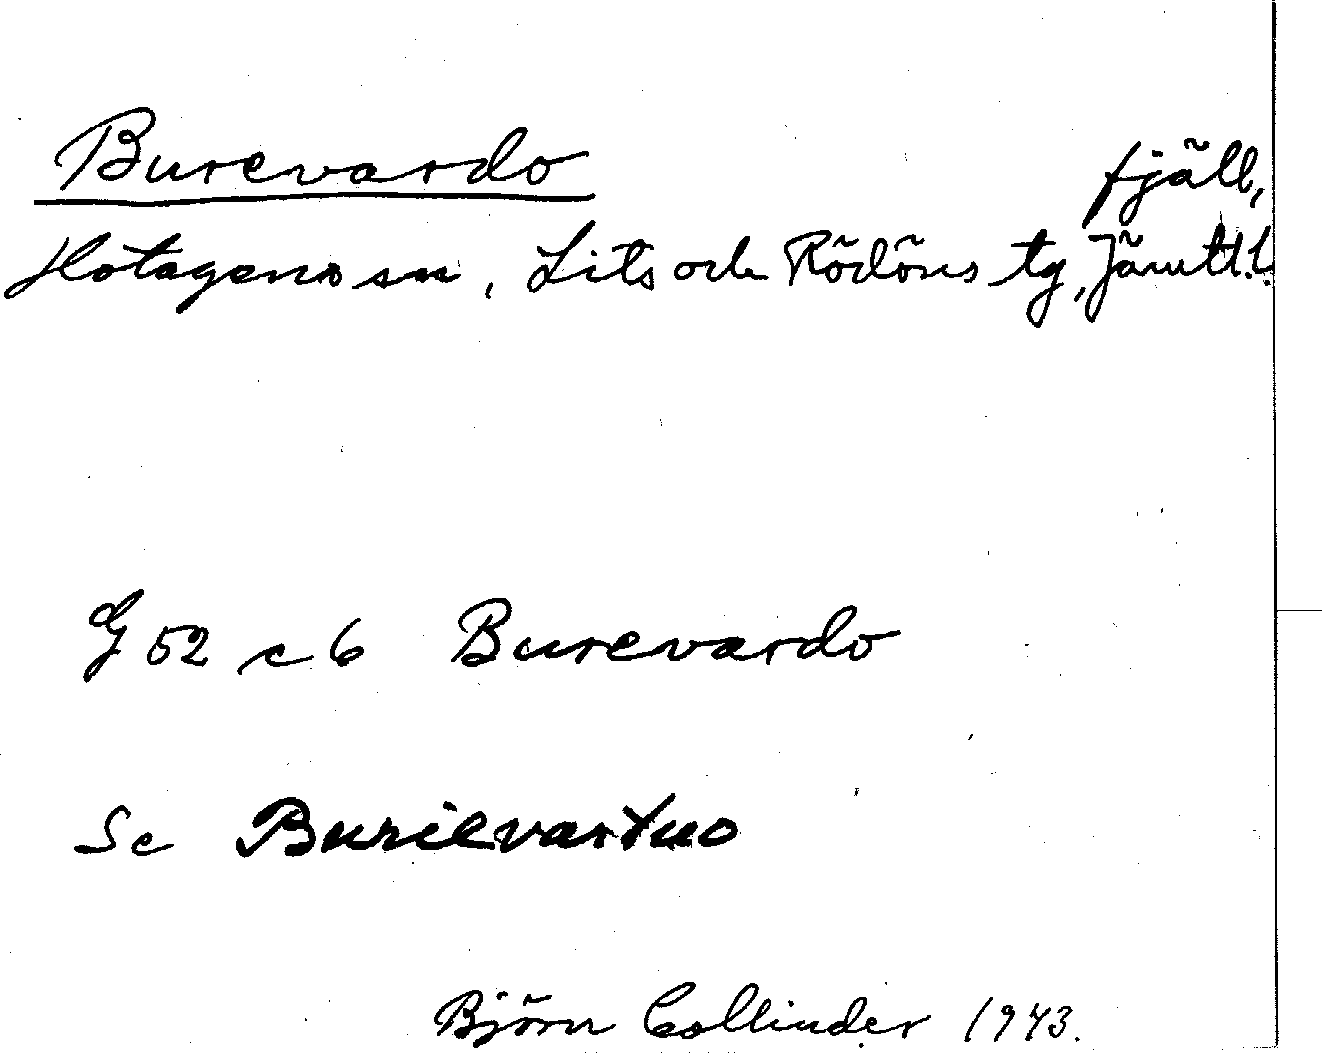 Burevardo fjäll,
Hotagens sn, Lits och Rödöns tg, Jämtl. l.
G 52 c 6 Burevardo
Se Burievartuo
Björn Collinder 1943.